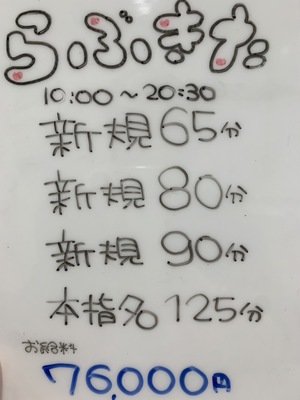 らぶきな
10:00～20:30
新規65分
新規80分
新規90分
本指名125分
お給料
76,000円